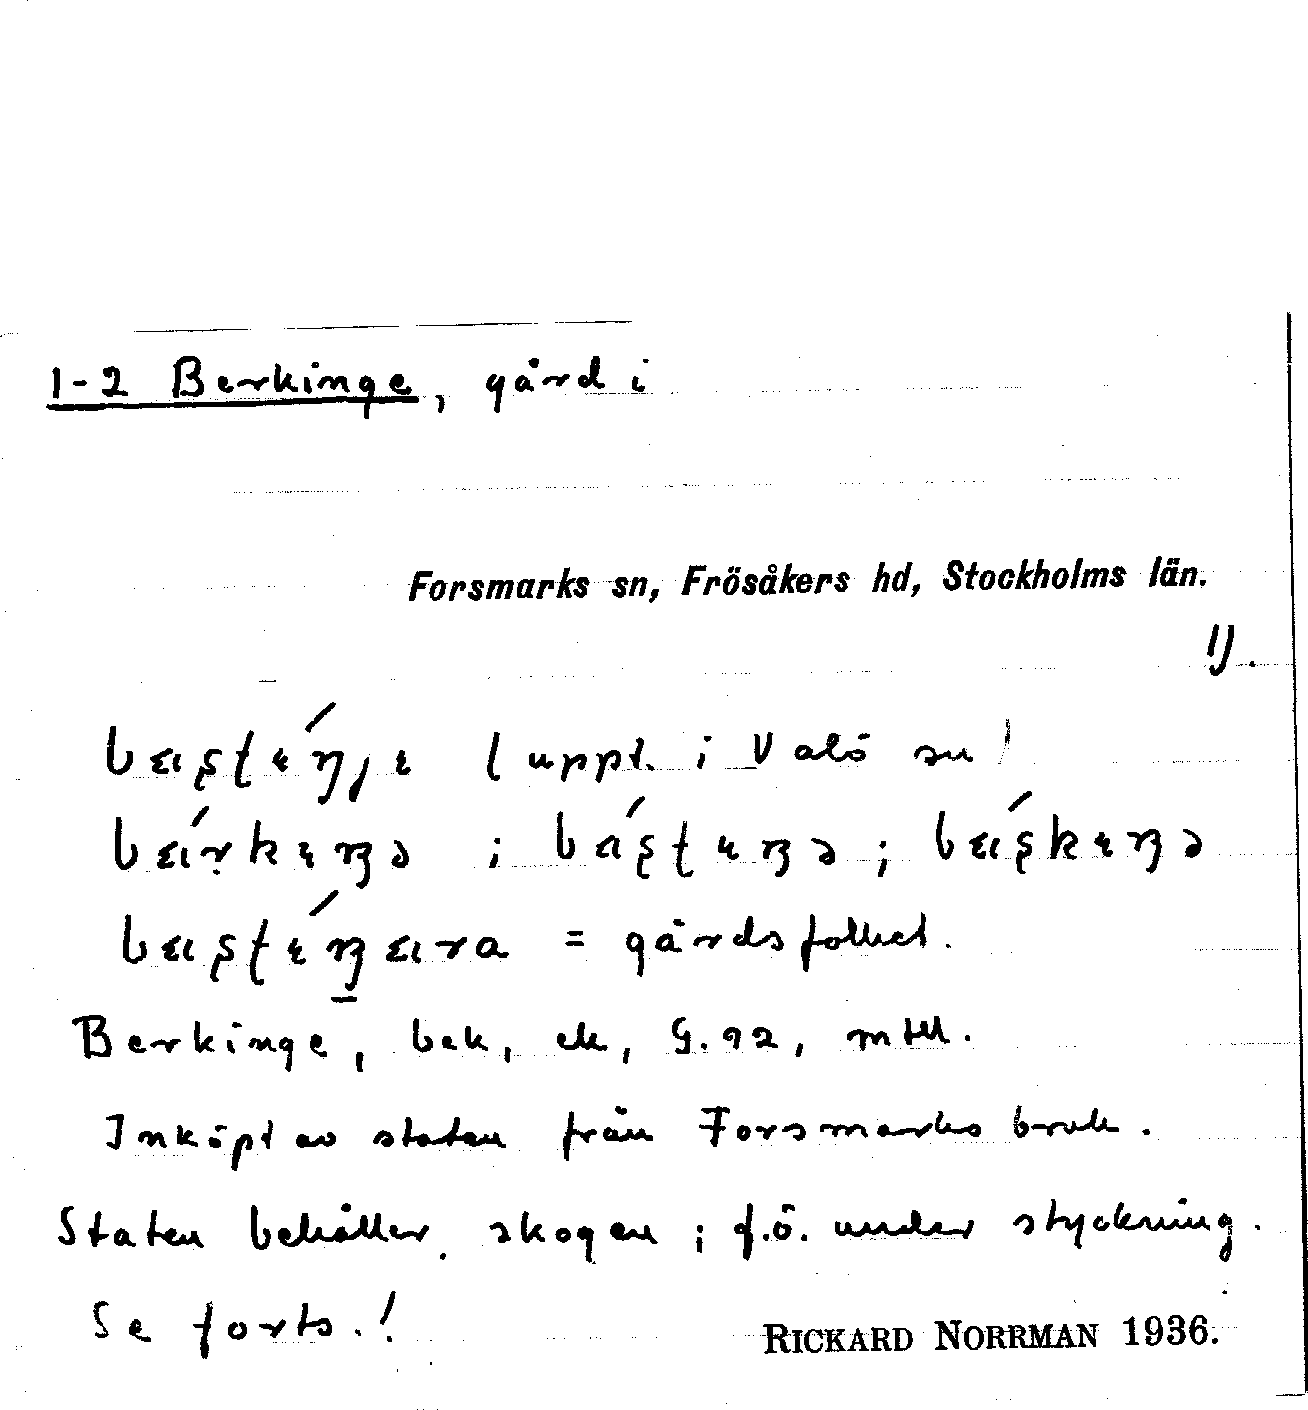 1-2 Berkinge, gård i
Forsmarks sn, Frösåkers hd, Stockholms län.
1).
(uppt. i Valö sn)
; ;
= gårdsfolket.
Berkinge, bek, ek, G. 92, mtll.
Inköpt av staten från Forsmarks bruk.
Staten behåller skogen; f.ö. under styckning.
Se forts.!
RICKARD NORRMAN 1936.